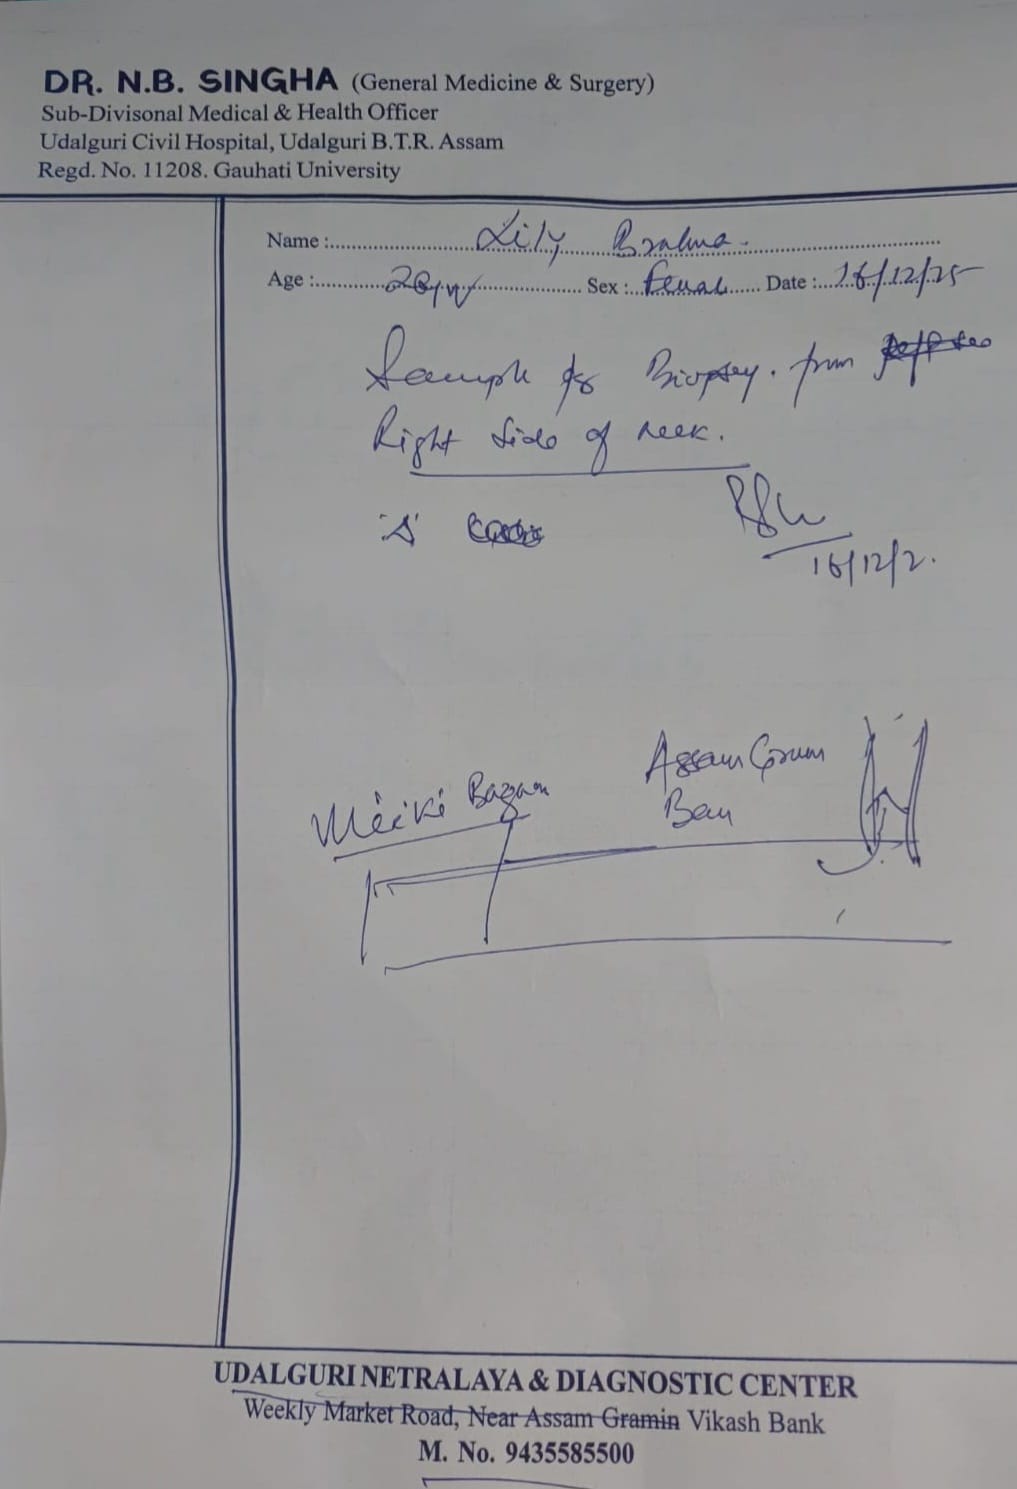 DR. N.B. SINGHA (General Medicine & Surgery)
Sub-Divisonal Medical & Health Officer
Udalguri Civil Hospital, Udalguri B.T.R. Assam
Regd. No. 11208. Gauhati University
Name :........ Lily Brahma
Age :........ Sex :... Female ...... Date :... 16/12/25
Sample for Biopsy. from
Right side of neck.
16/12/2.
Assam
UDALGURI NETRALAYA & DIAGNOSTIC CENTER
Weekly Market Road, Near Assam Gramin Vikash Bank
M. No. 9435585500